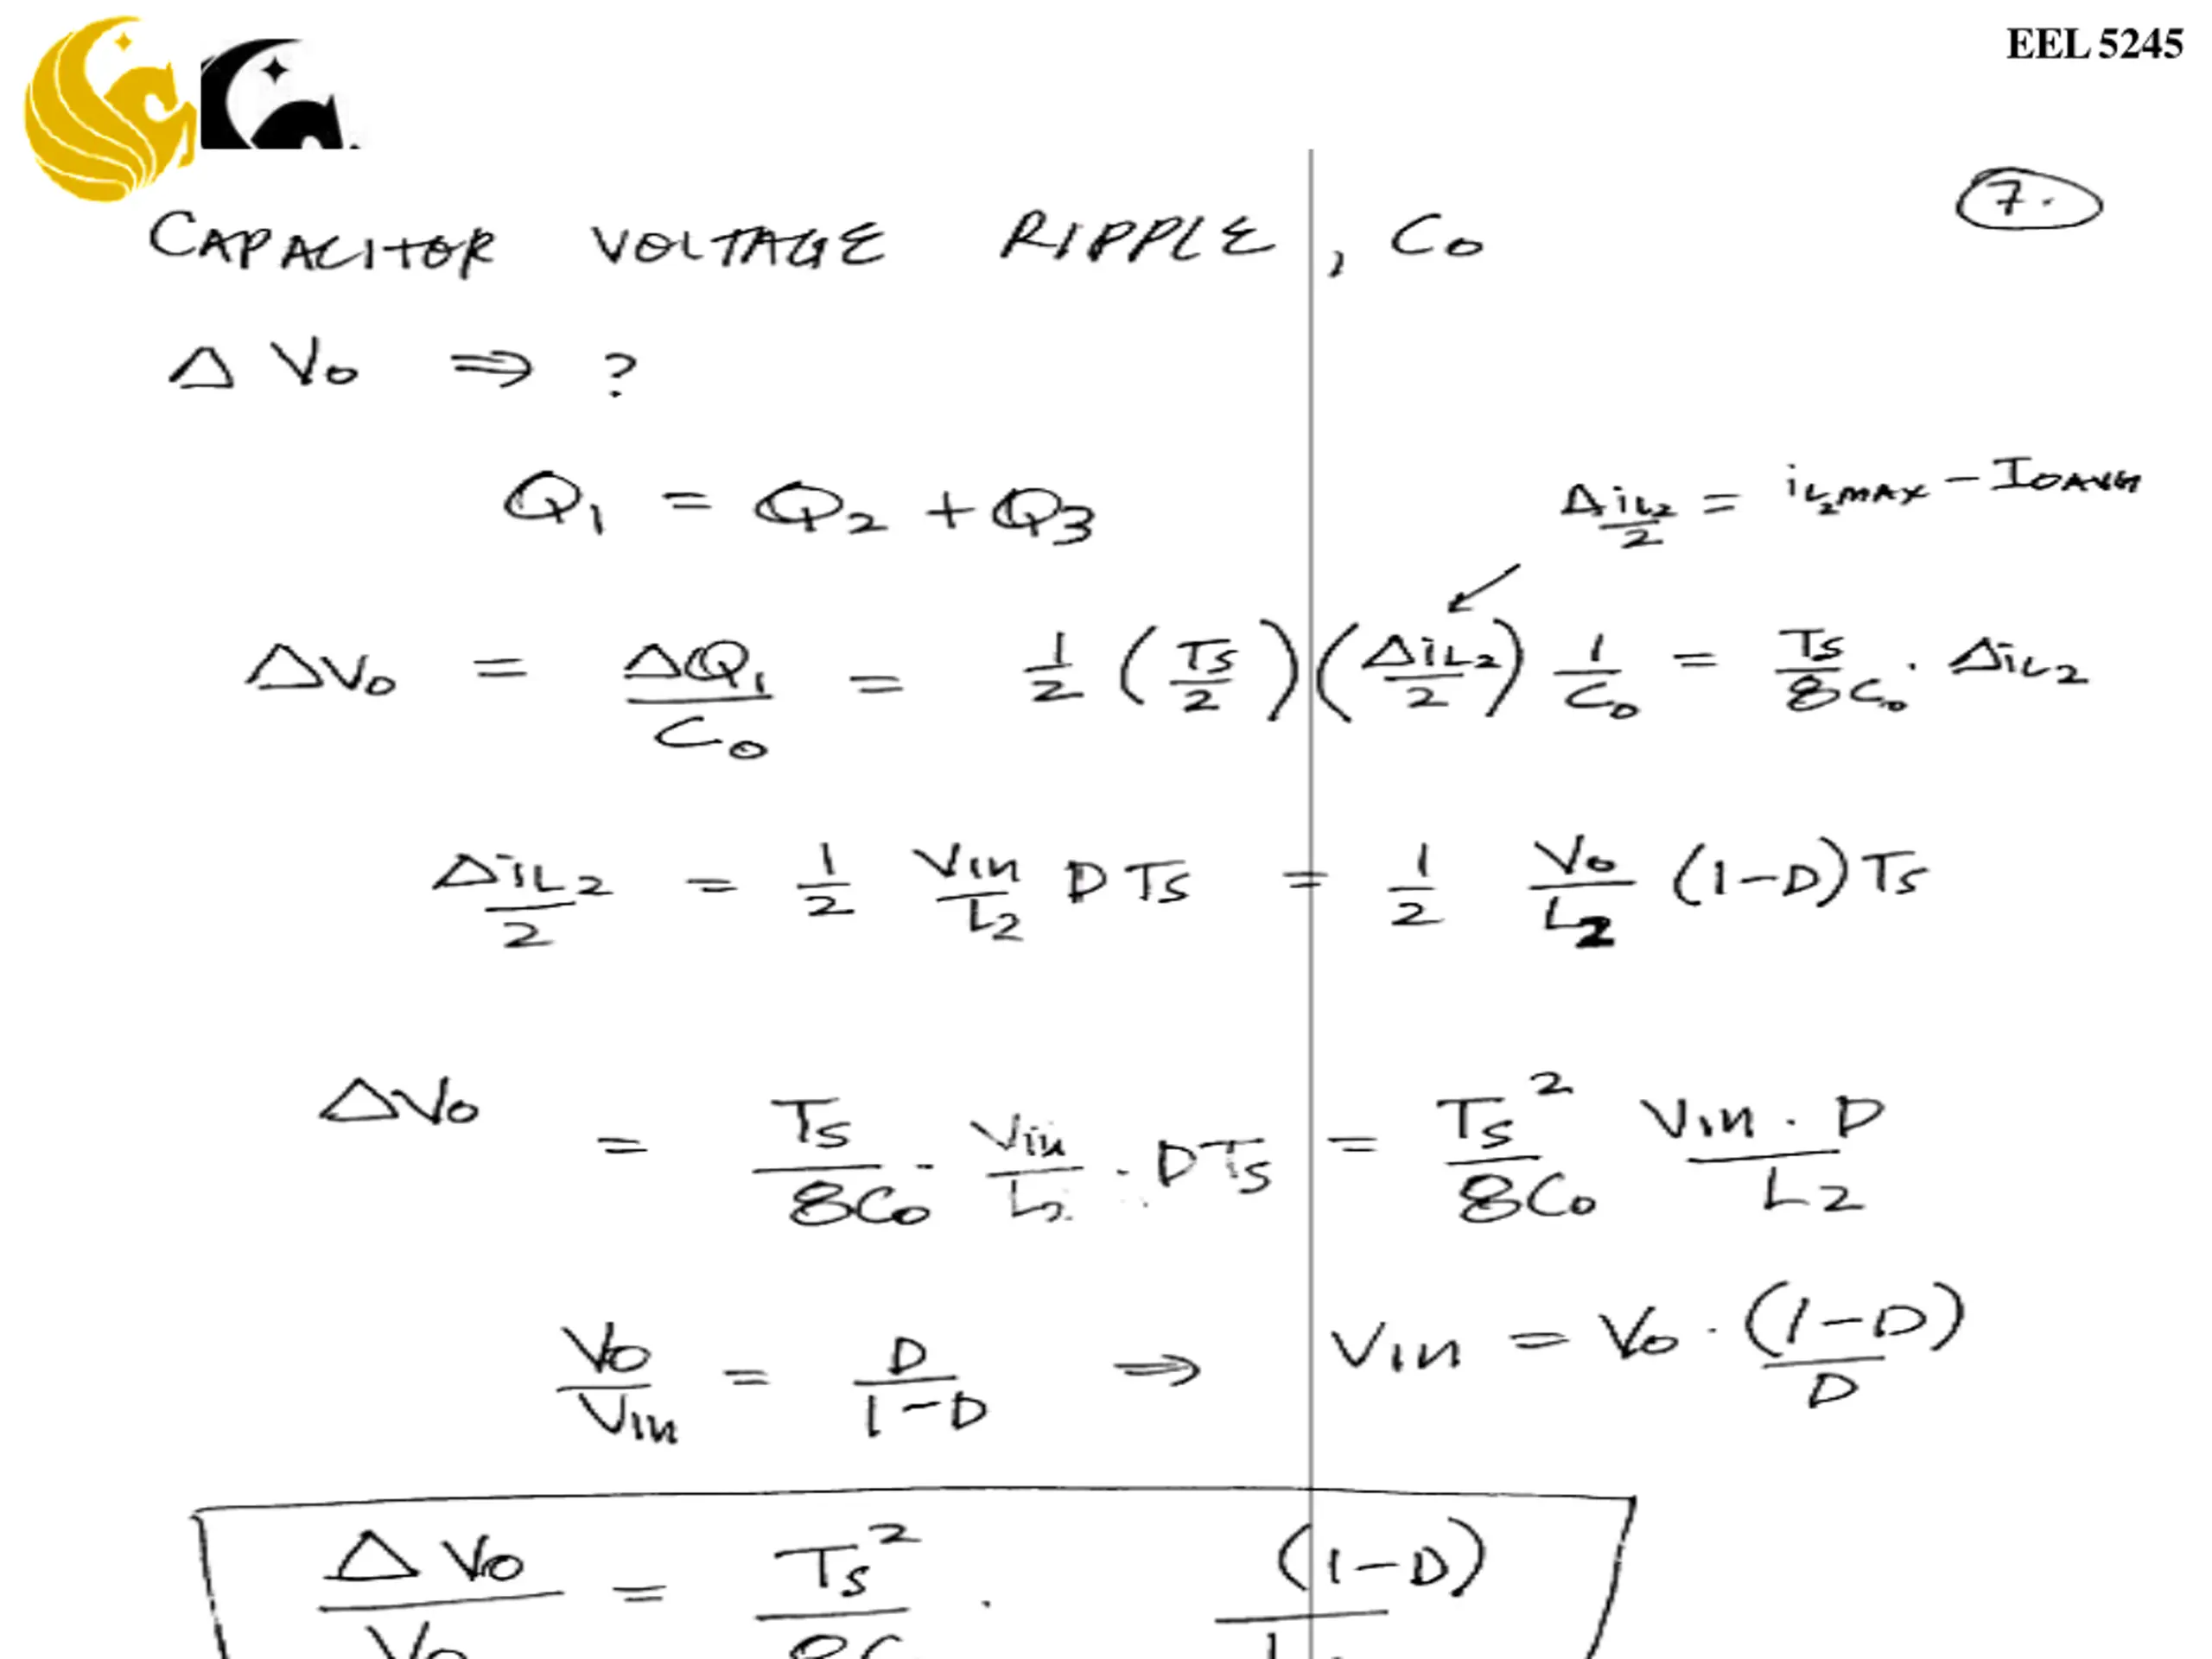 EEL 5245
7.
CAPACITOR VOLTAGE RIPPLE, Co
Δ Vo ⇒ ?
Q1 = Q2 + Q3
ΔiL2/2 = iL2MAX - IOAVG
ΔVo = ΔQ1/Co = 1/2 (Ts/2) (ΔiL2/2) 1/Co = Ts/8Co · ΔiL2
ΔiL2/2 = 1/2 Vin/L2 DTs = 1/2 Vo/L2 (1-D)Ts
ΔVo = Ts/8Co · Vin/L2 · DTs = Ts²/8Co Vin · D/L2
Vo/Vin = D/1-D ⇒ Vin = Vo · (1-D)/D
ΔVo/Vo = Ts²/8C · (1-D)/L